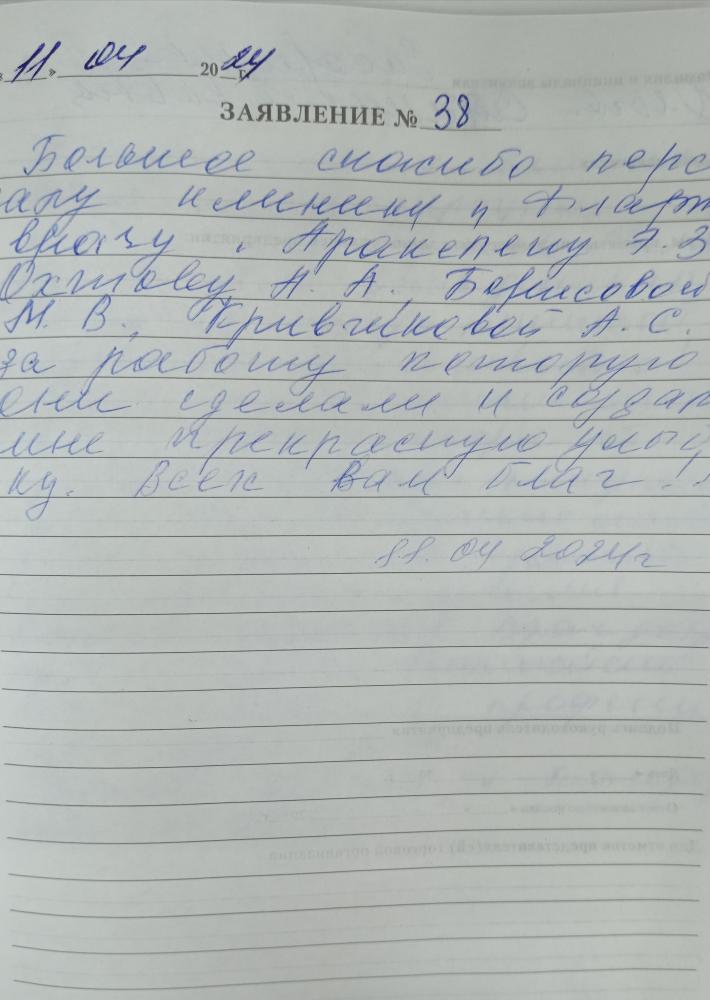 «11» 04 2024 г.
ЗАЯВЛЕНИЕ № 38
Большое спасибо перс
налу клиники и
врачу Аракеляну А.З
Охтову А. А. Борисовой
М. В., Кривчиковой А. С.
за работу которую
они сделали и создал
мне прекрасную улыб
ку. Всех вам благ!
11.04 2024г